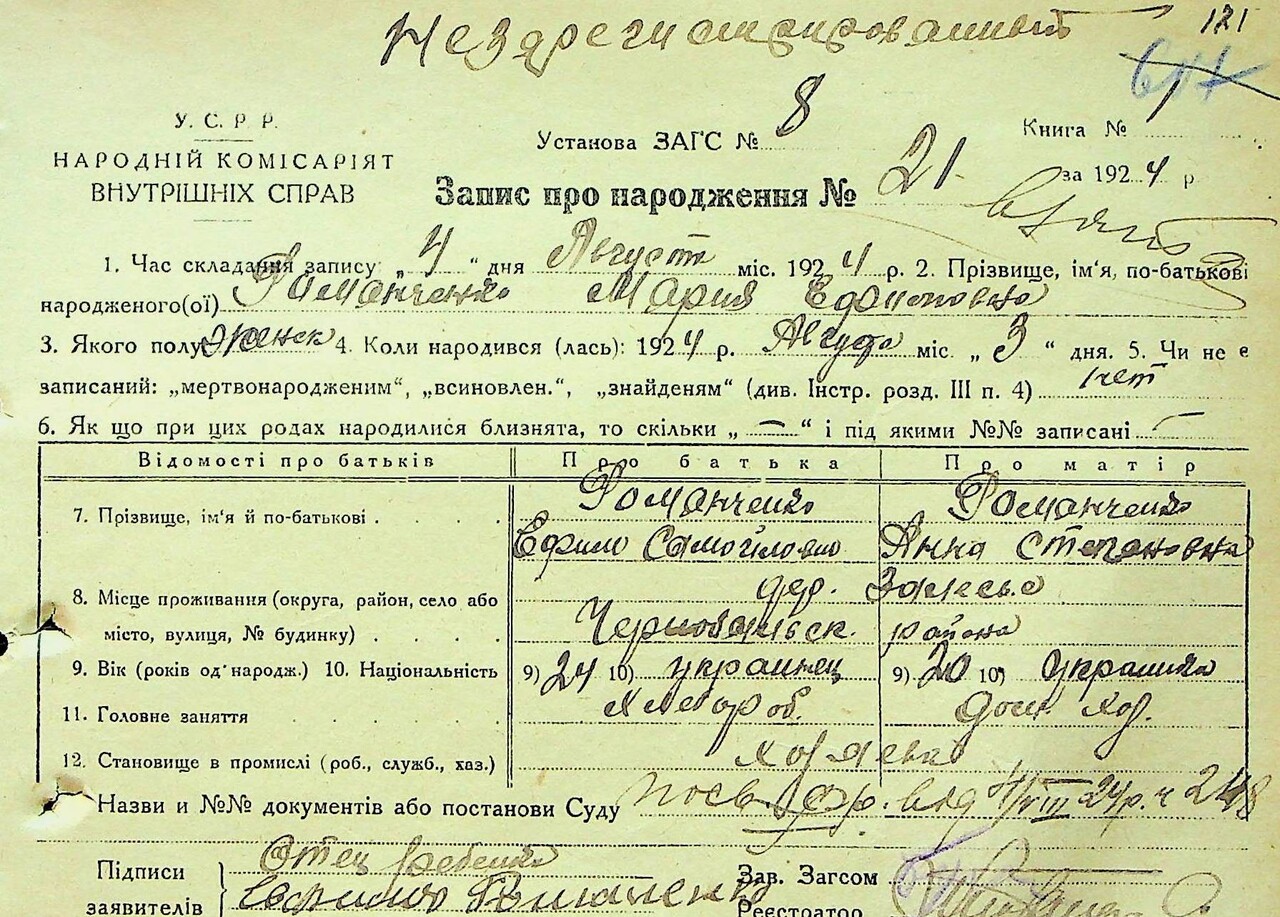 Незарегистрированный 121
У. С. Р. Р.
НАРОДНІЙ КОМІСАРІЯТ
ВНУТРІШНІХ СПРАВ
Установа ЗАГС № 8
Книга № 1
Запис про народження № 21
за 1924 р
1. Час складання запису „4“ дня Август міс. 1924 р. 2. Прізвище, ім'я, по-батькові
народженого(ої) Романченко Мария Ефимовна
3. Якого полу женск 4. Коли народився (лась): 1924 р. Августа міс. „3“ дня. 5. Чи не є
записаний: „мертвонародженим“, „всиновлен.“, „знайденям“ (див. Інстр. розд. III п. 4) нет
6. Як що при цих родах народилися близнята, то скільки „—“ і під якими №№ записані —
Відомості про батьків Про батька Про матір
7. Прізвище, ім'я й по-батькові Романченко Романченко
Ефим Самойлович Анна Степановна
8. Місце проживання (округа, район, село або дер. Залесье
місто, вулиця, № будинку) Чернобыльск. района
9. Вік (років од'народж.) 10. Національність 9) 24 10) украинец 9) 20 10) Украинка
11. Головне заняття Хлебороб. дом. хоз.
12. Становище в промислі (роб., служб., хаз.) Хозяева
Назви и №№ документів або постанови Суду від 4/VIII 24 р. ч 248
Підписи Отец ребенка Зав. Загсом
заявителів Реєстратор